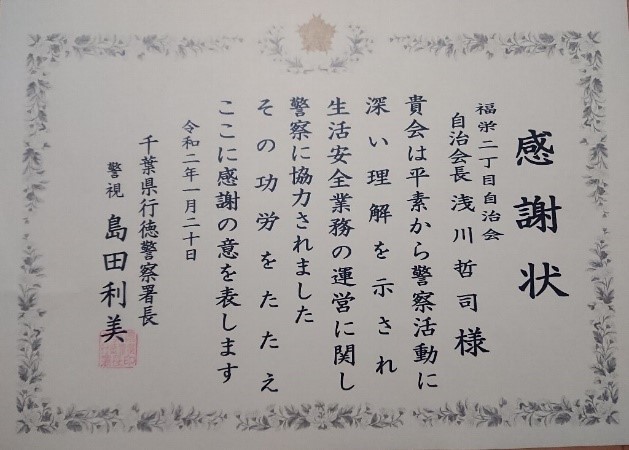 感謝状
福栄二丁目自治会
自治会長 浅川哲司 様
貴会は平素から警察活動に
深い理解を示され
生活安全業務の運営に関し
警察に協力されました
その功労をたたえ
ここに感謝の意を表します
令和二年一月二十日
千葉県行徳警察署長
警視 島田利美